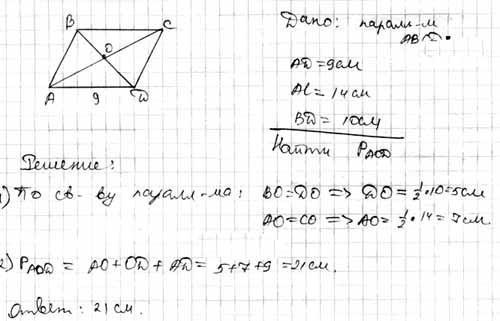 B C
O
A 9 D
Дано: паралл-м
ABCD.
AD=9см
AC=14см
BD=10см
Найти P AOD
Решение:
1) По св-ву паралл-ма: BO=DO => DO=½·10=5см
AO=CO => AO=½·14=7см.
2) P AOD = AO+OD+AD=5+7+9=21см.
Ответ: 21см.